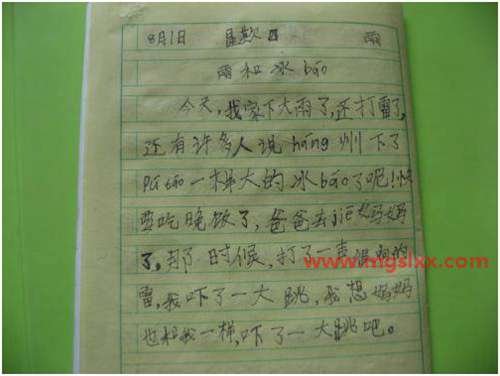 8月1日 星期日 雨
雨和冰báo
今天,我家下大雨了,还打雷了,
还有许多人说háng州下了
Pú táo一样大的冰báo了呢!快
要吃晚饭了,爸爸去jiē妈妈
了,那时候,打了一声很响的
雷,我吓了一大跳,我想妈妈
也和我一样,吓了一大跳吧。
www.mgslxx.com